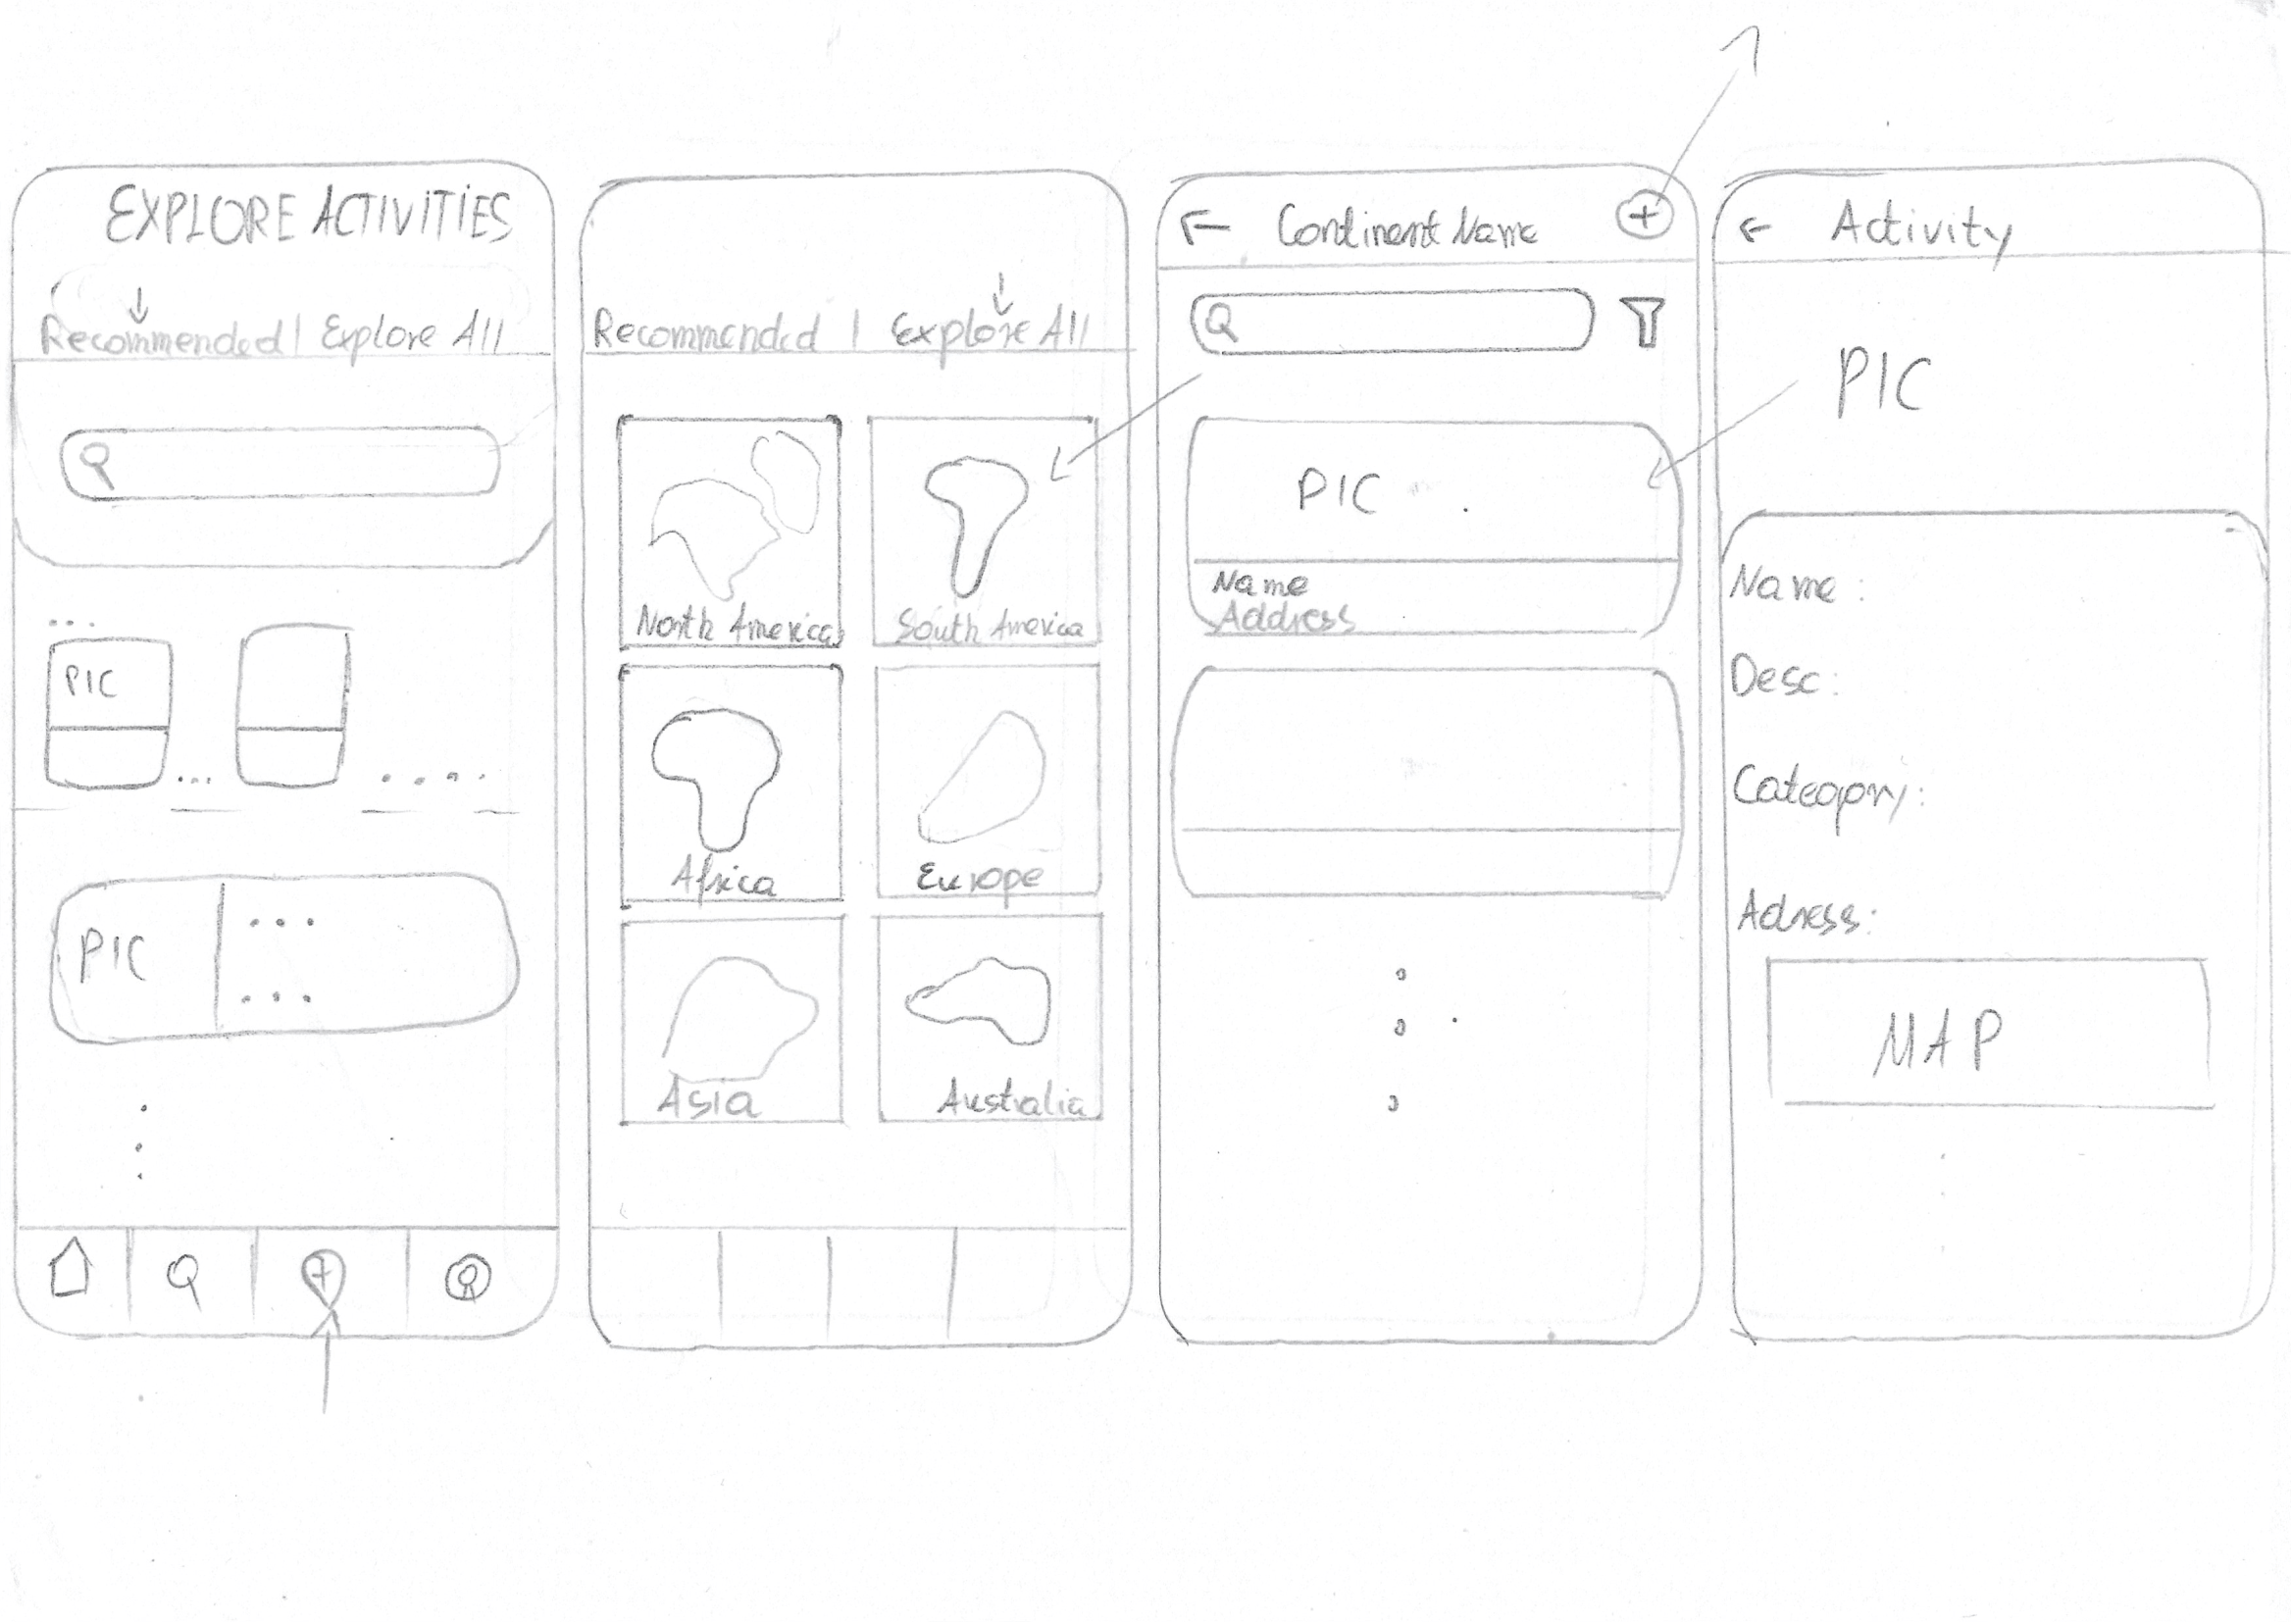 EXPLORE ACTIVITIES
Recommended | Explore All
...
PIC
...
....
PIC
...
...
Recommended | Explore All
North America
South America
Africa
Europe
Asia
Australia
Continent Name
PIC
Name
Address
Activity
PIC
Name:
Desc:
Category:
Adress:
MAP